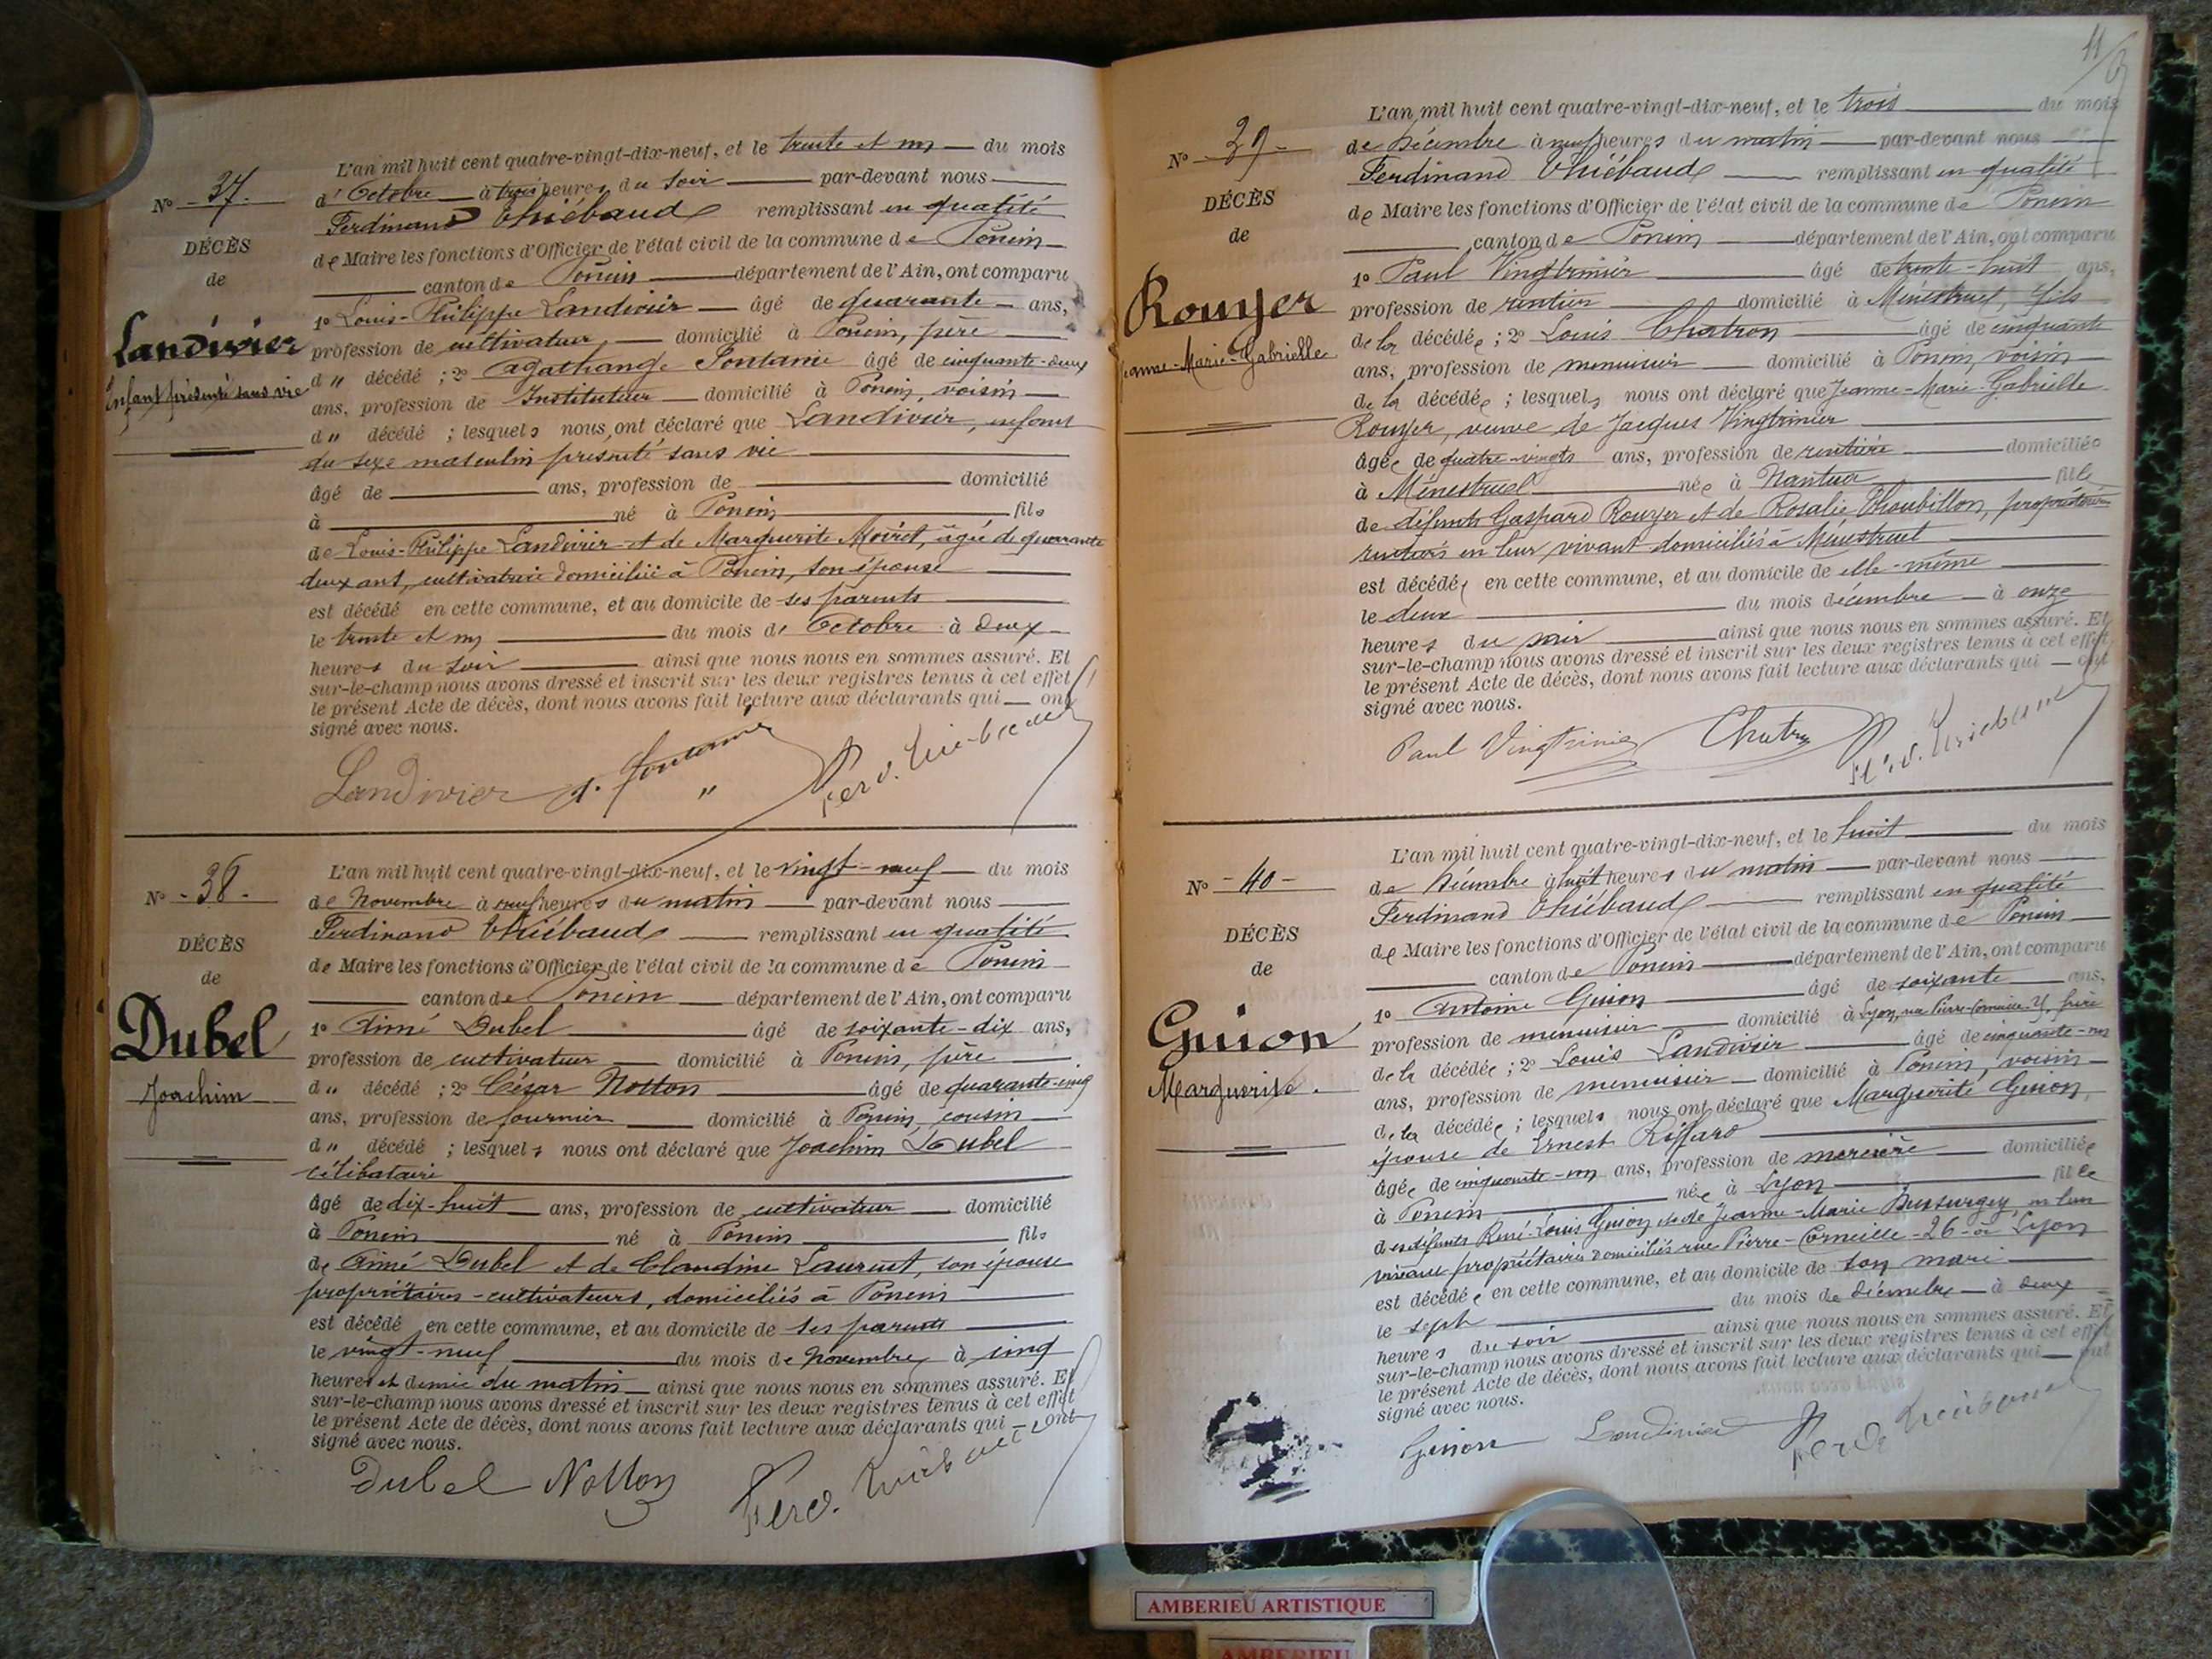 N° - 37. -
DÉCÈS
de
Landivier
Enfant présenté sans vie
L'an mil huit cent quatre-vingt-dix-neuf, et le trente et un du mois
d'Octobre à trois heures du soir par-devant nous
Ferdinand Thiébaud remplissant en qualité
de Maire les fonctions d'Officier de l'état civil de la commune de Poncin
canton de Poncin département de l'Ain, ont comparu
1° Louis-Philippe Landivier âgé de quarante ans,
profession de cultivateur domicilié à Poncin, père
d " décédé ; 2° Agathange Fontanie âgé de cinquante-deux
ans, profession de Instituteur domicilié à Poncin, voisin
d " décédé ; lesquels nous ont déclaré que Landivier, enfant
du sexe masculin présenté sans vie
âgé de ans, profession de domicilié
à né à Poncin fils
de Louis-Philippe Landivier et de Marguerite Moiret, âgée de quarante
deux ans, cultivatrice domiciliée à Poncin, son épouse
est décédé en cette commune, et au domicile de ses parents
le trente et un du mois d'Octobre à deux
heures du soir ainsi que nous nous en sommes assuré. Et
sur-le-champ nous avons dressé et inscrit sur les deux registres tenus à cet effet
le présent Acte de décès, dont nous avons fait lecture aux déclarants qui ont
signé avec nous.
Landivier Ferd. Thiébaud
N° - 38 -
DÉCÈS
de
Dubel
Joachim
L'an mil huit cent quatre-vingt-dix-neuf, et le vingt-neuf du mois
de Novembre à neuf heures du matin par-devant nous
Ferdinand Thiébaud remplissant en qualité
de Maire les fonctions d'Officier de l'état civil de la commune de Poncin
canton de Poncin département de l'Ain, ont comparu
1° Aimé Dubel âgé de soixante-dix ans,
profession de cultivateur domicilié à Poncin, père
d " décédé ; 2° César Notton âgé de quarante-cinq
ans, profession de fournier domicilié à Poncin, cousin
d " décédé ; lesquels nous ont déclaré que Joachim Dubel
célibataire
âgé de dix-huit ans, profession de cultivateur domicilié
à Poncin né à Poncin fils
de Aimé Dubel et de Claudine Laurent, son épouse
propriétaires-cultivateurs, domiciliés à Poncin
est décédé en cette commune, et au domicile de ses parents
le vingt-neuf du mois de Novembre à cinq
heures et demie du matin ainsi que nous nous en sommes assuré. Et
sur-le-champ nous avons dressé et inscrit sur les deux registres tenus à cet effet
le présent Acte de décès, dont nous avons fait lecture aux déclarants qui ont
signé avec nous.
Dubel Notton Ferd. Thiébaud
11
N° 39 -
DÉCÈS
de
Rouyer
Jeanne-Marie-Gabrielle
L'an mil huit cent quatre-vingt-dix-neuf, et le trois du mois
de Décembre à neuf heures du matin par-devant nous
Ferdinand Thiébaud remplissant en qualité
de Maire les fonctions d'Officier de l'état civil de la commune de Poncin
canton de Poncin département de l'Ain, ont comparu
1° Paul Vingtrinier âgé de trente-huit ans,
profession de rentier domicilié à Ménestruel, fils
de la décédée ; 2° Louis Chatron âgé de cinquante
ans, profession de menuisier domicilié à Poncin, voisin
de la décédée ; lesquels nous ont déclaré que Jeanne-Marie-Gabrielle
Rouyer, veuve de Jacques Vingtrinier
âgée de quatre-vingts ans, profession de rentière domiciliée
à Ménestruel née à Nantua fille
de défunts Gaspard Rouyer et de Rosalie Thoubillon, propriétaires
rentiers en leur vivant domiciliés à Ménestruel
est décédée en cette commune, et au domicile de elle-même
le deux du mois décembre à onze
heures du soir ainsi que nous nous en sommes assuré. Et
sur-le-champ nous avons dressé et inscrit sur les deux registres tenus à cet effet
le présent Acte de décès, dont nous avons fait lecture aux déclarants qui ont
signé avec nous.
Paul Vingtrinier Chatron Ferd. Thiébaud
N° - 40 -
DÉCÈS
de
Guion
Marguerite.
L'an mil huit cent quatre-vingt-dix-neuf, et le huit du mois
de Décembre à huit heures du matin par-devant nous
Ferdinand Thiébaud remplissant en qualité
de Maire les fonctions d'Officier de l'état civil de la commune de Poncin
canton de Poncin département de l'Ain, ont comparu
1° Antoine Guion âgé de soixante ans,
profession de menuisier domicilié à Lyon, rue Pierre-Corneille frère
de la décédée ; 2° Louis Landivier âgé de cinquante-un
ans, profession de menuisier domicilié à Poncin, voisin
de la décédée ; lesquels nous ont déclaré que Marguerite Guion,
épouse de Ernest Riffard
âgée de cinquante-un ans, profession de mercière domiciliée
à Poncin née à Lyon fille
des défunts René-Louis Guion et de Jeanne-Marie Dussurgey en leur
vivant propriétaires domiciliés rue Pierre-Corneille - 26 - à Lyon
est décédée en cette commune, et au domicile de son mari
le sept du mois de décembre à deux
heures du soir ainsi que nous nous en sommes assuré. Et
sur-le-champ nous avons dressé et inscrit sur les deux registres tenus à cet effet
le présent Acte de décès, dont nous avons fait lecture aux déclarants qui ont
signé avec nous.
Guion Landivier Ferd. Thiébaud
AMBERIEU ARTISTIQUE
AMBERIEU